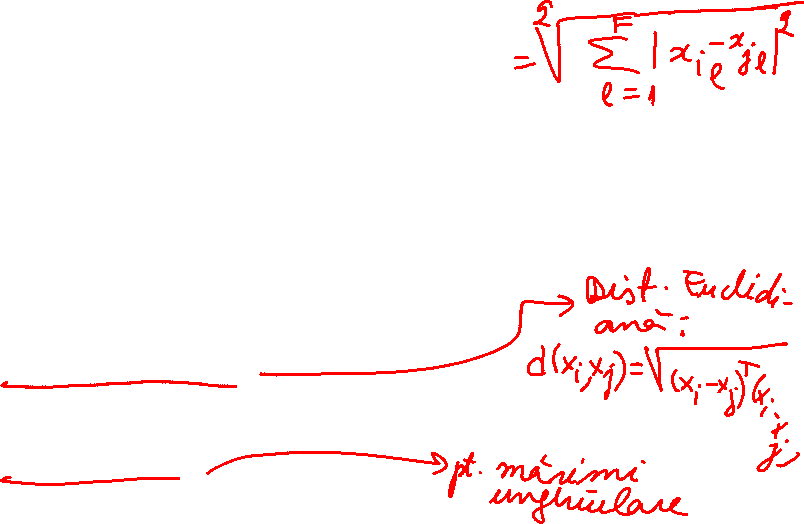 = ²√ Σ_{l=1}^{F} |x_{il} - x_{jl}|²
Dist. Euclidi-
ană:
d(x_i, x_j) = √(x_i - x_j)^T (x_i - x_j)
pt. mărimi
unghiulare